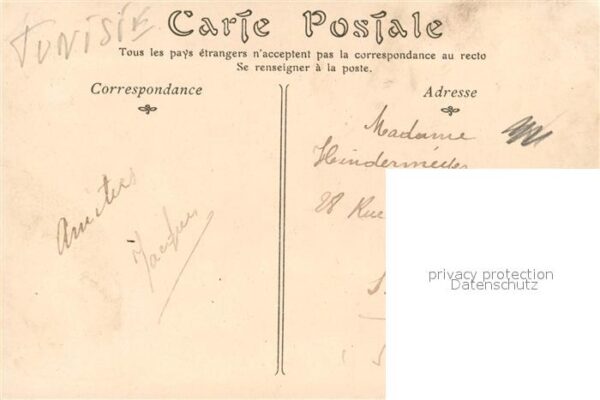 TUNISIE
Carte Postale
Tous les pays étrangers n'acceptent pas la correspondance au recto
Se renseigner à la poste.
Correspondance
Adresse
Madame
28 Rue
Amitiés
Jacques
privacy protection
Datenschutz